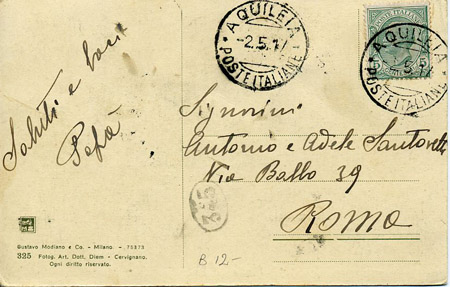 AQUILEIA
2.5.17
POSTE ITALIANE
POSTE ITALIANE
5
AQUILEIA
5.17
POSTE ITALIANE
Saluti e baci
Papà
Signorini
Antonio e Adele
Via Balbo 39
Roma
325
B 12-
Gustavo Modiano e Co. - Milano. - 75373
325 Fotog. Art. Dott. Diem - Cervignano.
Ogni diritto riservato.